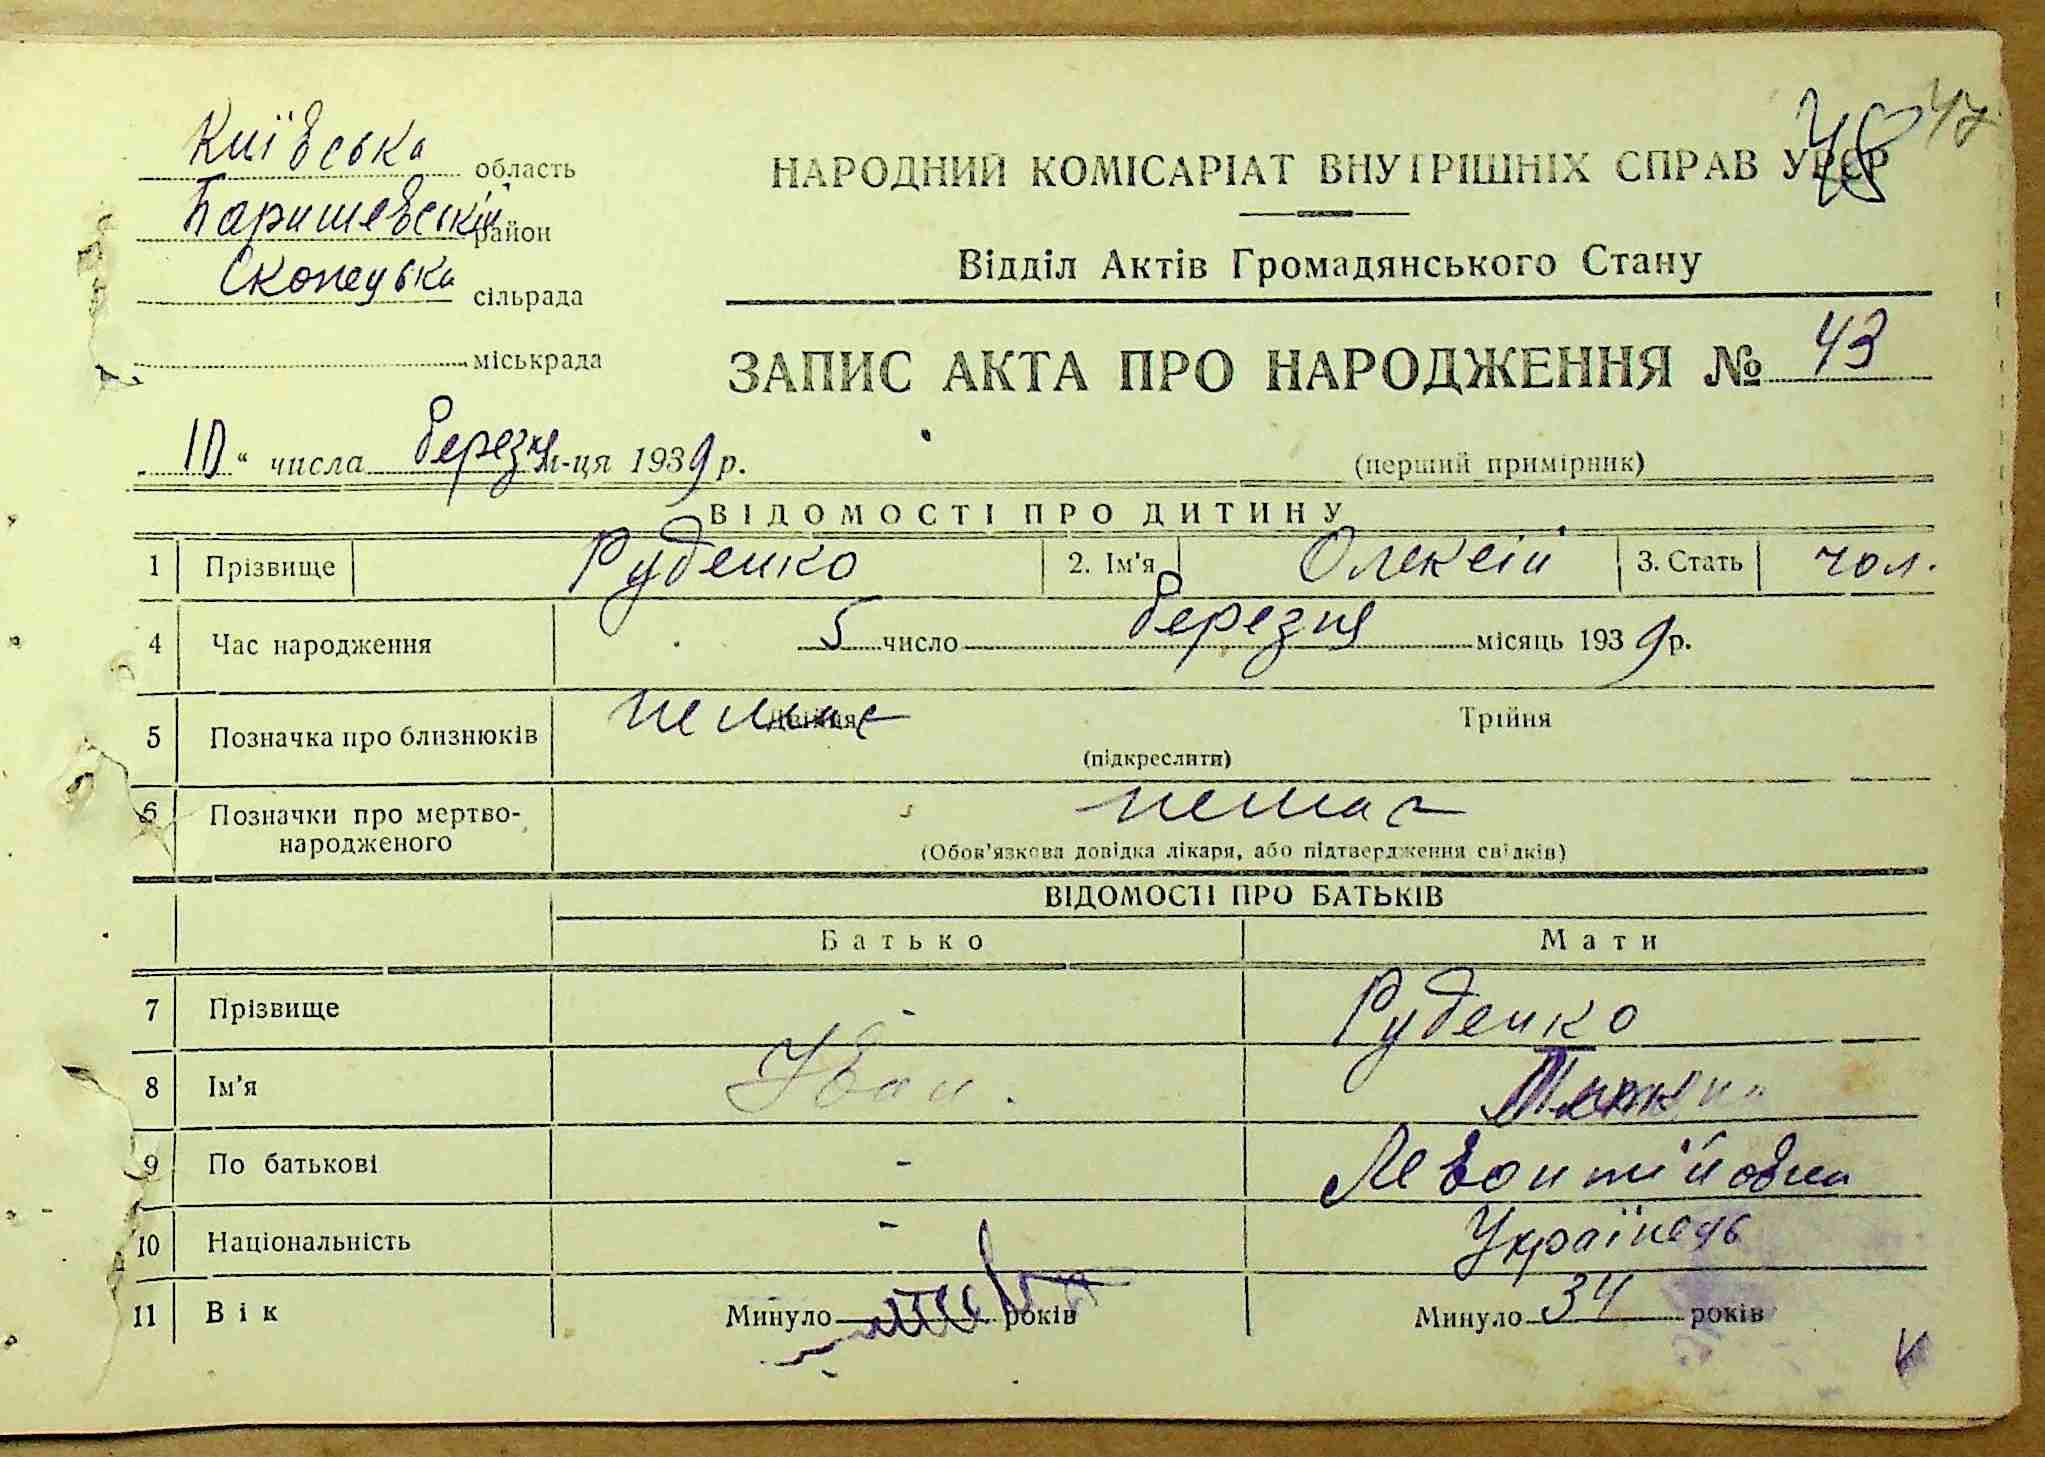 47
48
Київська область
НАРОДНИЙ КОМІСАРІАТ ВНУТРІШНІХ СПРАВ УРСР
Баришевській район
Відділ Актів Громадянського Стану
Скопецька сільрада
міськрада
ЗАПИС АКТА ПРО НАРОДЖЕННЯ № 43
„10“ числа березня м-ця 1939 р.
(перший примірник)
ВІДОМОСТІ ПРО ДИТИНУ
1 Прізвище Руденко 2. Ім'я Олексій 3. Стать чол.
4 Час народження 5 число березня місяць 1939 р.
5 Позначка про близнюків немає Двійня Трійня
(підкреслити)
6 Позначки про мертво-
народженого немає
(Обов'язкова довідка лікаря, або підтвердження свідків)
ВІДОМОСТІ ПРО БАТЬКІВ
Батько Мати
7 Прізвище - Руденко
8 Ім'я Іван.
9 По батькові - Левонтійовна
10 Національність - Українець
11 Вік Минуло років Минуло 34 років